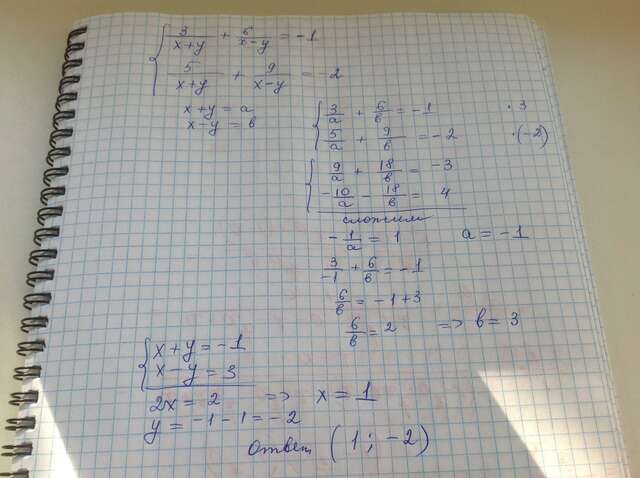 3/(x+y) + 6/(x-y) = -1
5/(x+y) + 9/(x-y) = -2
x+y = a
x-y = b
3/a + 6/b = -1 ·3
5/a + 9/b = -2 ·(-2)
9/a + 18/b = -3
-10/a - 18/b = 4
сложим
-1/a = 1 a = -1
3/-1 + 6/b = -1
6/b = -1+3
6/b = 2 => b = 3
x+y = -1
x-y = 3
2x = 2 => x = 1
y = -1-1 = -2
Ответ (1; -2)